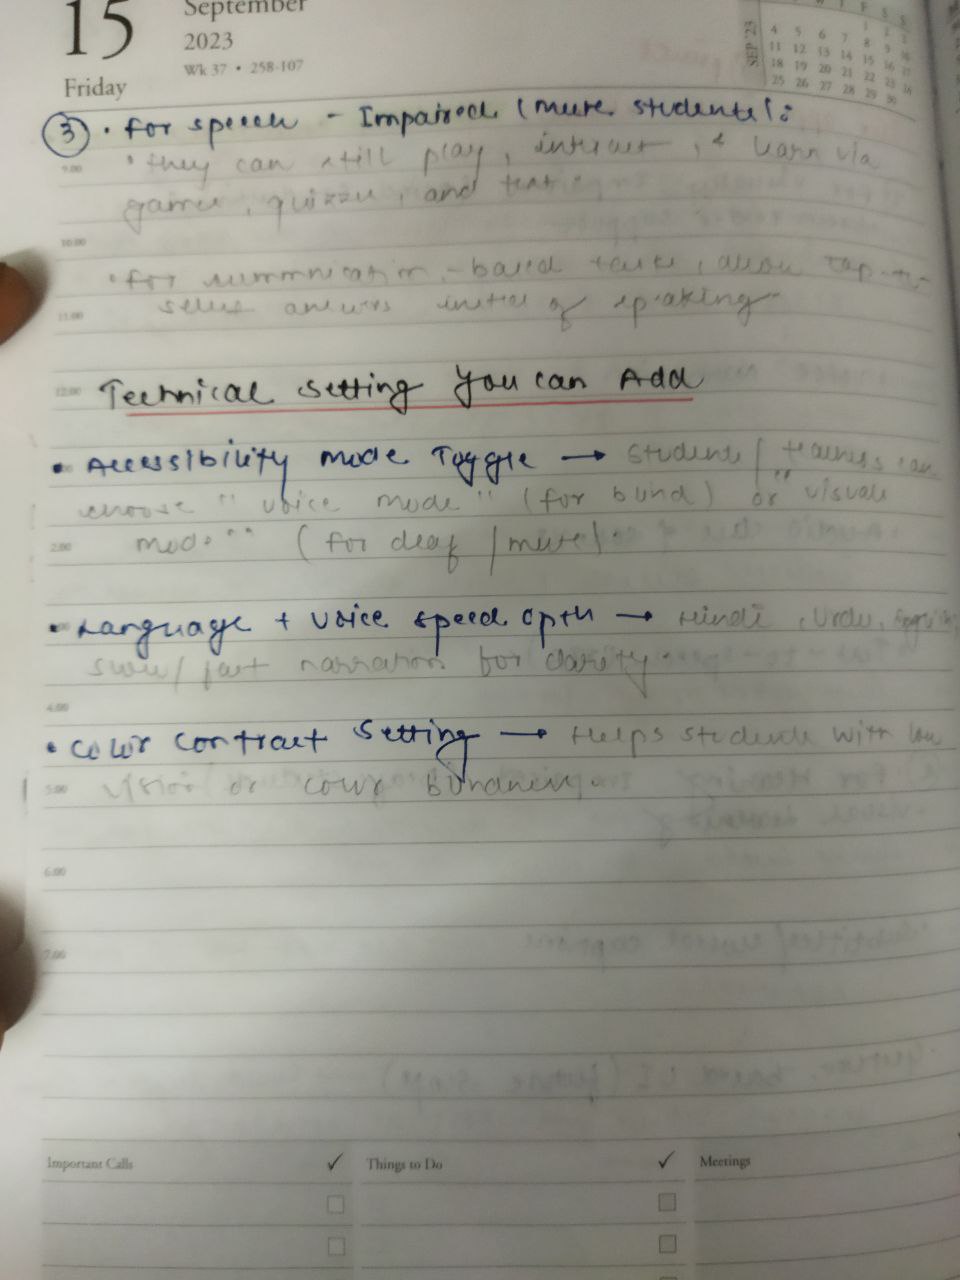 15
September
2023
Wk 37 • 258-107
Friday
SEP '23
F S S
4 5 6 7 8 9 10
11 12 13 14 15 16 17
18 19 20 21 22 23 24
25 26 27 28 29 30
③ • for speech - Impaired (mute students):
• they can still play, interact, & learn via
games, quizzes, and text.
• for communication-based tasks, allow tap-to-
select answers instead of speaking
Technical Setting You can Add
• Accessibility mode Toggle → Students / teachers can
choose "voice mode" (for blind) or "visual
mode" (for deaf / mute).
• Language + voice speed optn → Hindi, Urdu, English
slow/ fast narration for clarity.
• Color contrast Setting → Helps students with low
vision or colour blindness.
9.00
10.00
11.00
12.00
2.00
4.00
5.00
6.00
7.00
Important Calls ✓
Things to Do ✓
Meetings